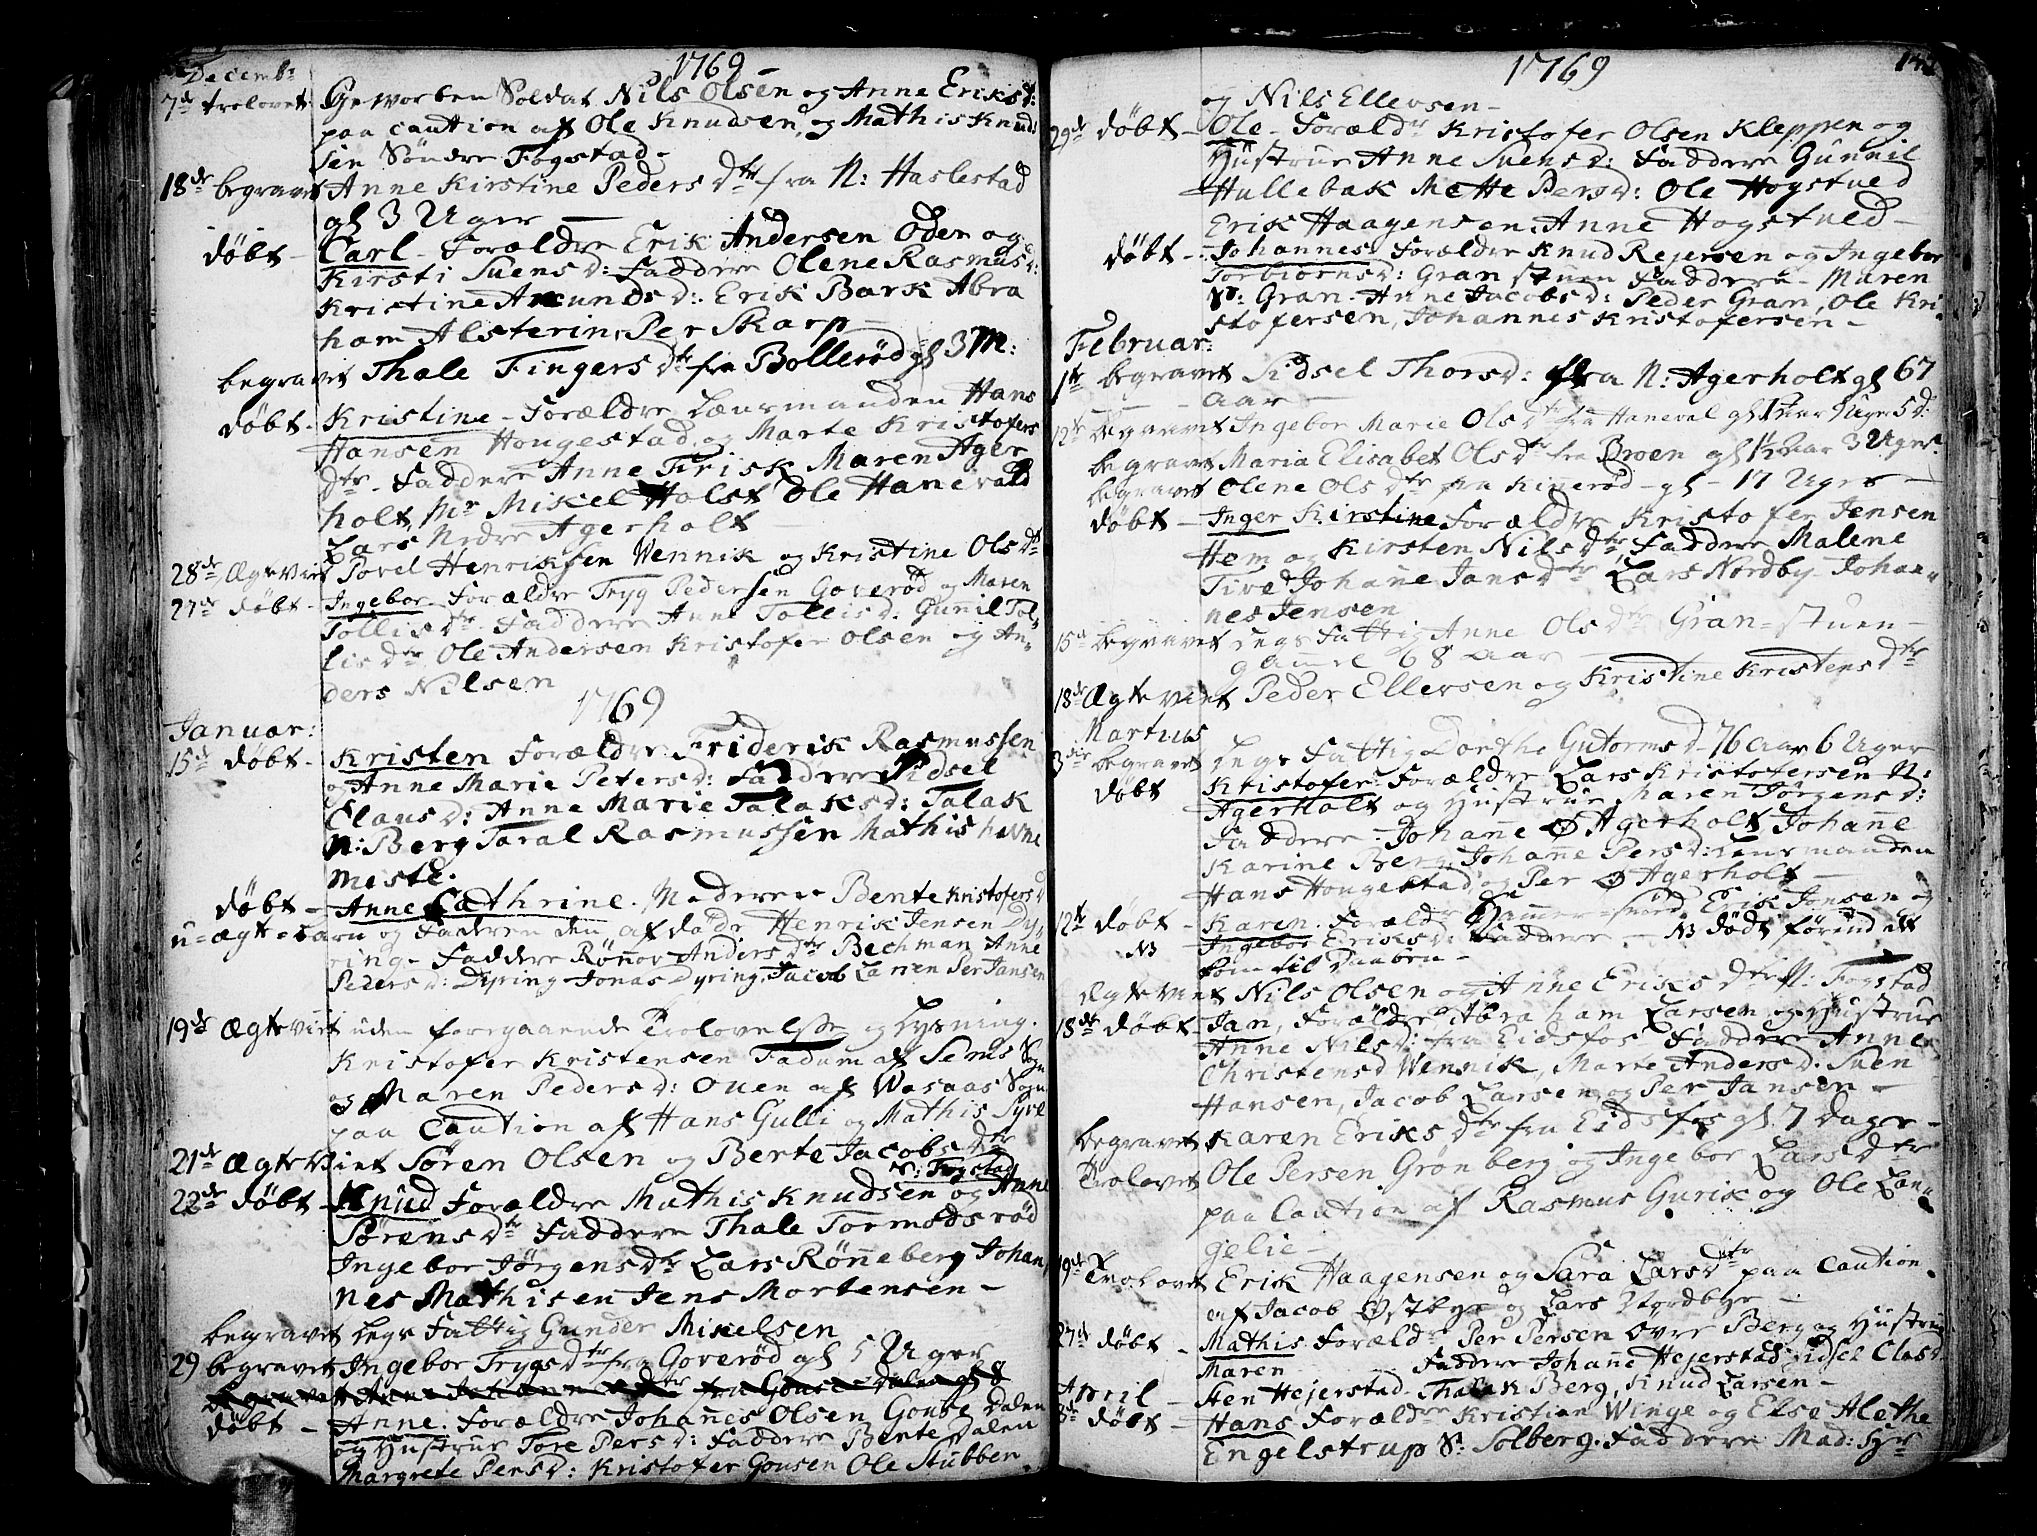 1769
Decembr
7de trolovet Geworben Soldat Nils Olsen og Anne Eriksd:
paa caution af Ole Knudsen, og Mathis Knud
sen Söndre Fogstad
18de begravet Anne Kirstine Peders Dtr fra N: Haslestad
gl 3 Uger
döbt - Carl - Forældre Erik Andersen Oden og
Kirsti Suensd: Faddere Olene Rasmusd:
Kristine Amundsd: Erik Bark Abra
ham Alsterin, Per Skarp
begravet Thale Fingers Dtr fra Bollerød gl 3 M:
döbt - Kristine - Forældre Lænsmanden Hans
Hansen Hougestad og Marte Kristofers
Dtr - Faddere Anne Frisk Maren Ager
holt, Mr Mikel Holst Ole Hanevald
Lars Nedre Agerholt
28de Ægteviet Povel Henriksen Wennik og Kristine Ols Dtr
27de döbt - Ingebor - Forældre Tryg Pedersen Goverød og Maren
Tollis Dtr - Faddere Anne Tollisd: Gunnil Tol-
lis Dtr Ole Andersen Kristofer Olsen og An-
ders Nilsen
1769
Januar:
15de döbt - Kristen Forældre Friderik Rasmussen
og Anne Marie Petersd: Faddere Sidsel
Clausd: Anne Marie Talaksd: Talak
N: Berg Taral Rasmussen Mathis Havne
meste.
döbt - Anne Cathrine. Moderen Bente Kristofersd
u-ægte-barn og Faderen den afdøde Henrik Jensen Dy-
ring - Faddere Rönnov Anders Dtr Bechman Anne
Petersd: Dyring Jonas Dyring, Jacob Larsen Per Jansen
19de Ægteviet uden foregaaende Trolovelse og Lysning.
Kristofer Kristensen Fadum af Sems Sogn
og Maren Pedersd: Ouen af Wasaas Sogn
paa Caution af Hans Gulli og Mathis Syre
21de Ægteviet Sören Olsen og Berte Jacobs Dtr
S: Fogstad
22de döbt - Knud Forældre Mathis Knudsen og Anne
Sörens Dtr Faddere Thale Tormodsröd
Ingebor Jörgens Dtr Lars Rönneberg Johan
nes Mathisen Jens Mortensen -
begravet Legs Fattig Gunder Mikelsen
29 begravet Ingebor Trygs Dtr fra Goverød gl 5 Uger
begravet Anne Johannes Dtr fra Gouse Dalen gl 8
döbt - Anne. Forældre Johannes Olsen Gouse Dalen
og Hustrue Tore Persd: Faddere Bente Dalen
Margrete Persd: Kristofer Gousen Ole Stubben
1769
og Nils Ellevsen -
29de döbt - Ole - Forældr Kristofer Olsen Kleppen og
Hustrue Anne Suensd: Faddere Gunnil
Hullebak Mette Persd: Ole Hogstved
Erik Haagensen, Anne Hogstved -
döbt - Johannes Forældre Knud Rejersen og Ingebor
Torbiörnsd: Gran stuen Faddere - Maren
N: Gran - Anne Jacobsd: Peder Gran, Ole Kri-
stofersen, Johannes Kristofersen -
Februar:
1te begravet Sidsel Thorsd: fra N: Agerholt gl 67
Aar
12te begravet Ingebor Marie Ols Dtr fra Haneval gl 1½ aar 9 Uger 5 d:
begravet Maria Elisabet Ols Dtr fra Broen gl 1½ aar 3 Uger.
begravet Olene Ols Dtr fra Kinerød - gl - 17 Uger -
döbt - Inger Kirstine Forældre Kristofer Jensen
Hem og Kirsten Nils Dtr, Faddere Malene
Tived Johanne Jans Dtr Lars Nordby - Johan-
nes Jensen
15de begravet Legs Fattig Anne Ols Dtr Gran-stuen -
gamel 68 aar
18de Ægteviet Peder Ellevsen og Kristine Kristens Dtr
Martius
3die begravet Legs Fattig Dorthe Gutormsd - 76 Aar 6 Uger
döbt Kristofer: Forældre Lars Kristofersen N:
Agerholt og Hustrue Maren Jörgensd:
Faddere - Johanne Ø Agerholt, Johanne
Karine Berg, Johanne Persd: Lensmanden
Hans Hougestad, og Per Ø Agerholt -
12te döbt - Karen. Forældr Hammer-smed Erik Jonsen og
NB Ingebor Eriksd: Faddere - NB Födt förend ett
kom til Daaben -
Ægteviet Nils Olsen og Anne Eriks Dtr N: Fogstad
18de döbt - Jan, Forældre Abraham Larsen og Hustrue
Anne Nilsd: fra Eidsfos Faddere Anne
Christensd Wennik, Marte Andersd. Suen
Hansen, Jacob Larsen og Per Jansen -
begravet Karen Eriks Dtr fra Eidsfos gl. 7 Dage -
Trolovet Ole Persen Grönberg og Ingebor Lars Dtr
paa Caution af Rasmus Gurik og Ole Lan-
gelie -
19de Trolovet Erik Haagensen og Sara Lars Dtr paa Caution
af Jacob Østbye og Lars Nordbye -
27de döbt - Mathis. Forældr Per Persen Øvre Berg og Hustrue
Maren Faddere Johanne Hejerstad Sidsel Clasd
April - Hen Hejerstad - Thalak Berg, Knud Larsen -
8de döbt - Hans Forældre Kristian Winge og Else Alethe
Engelstrup S: Solberg. Faddere Mad: Syr